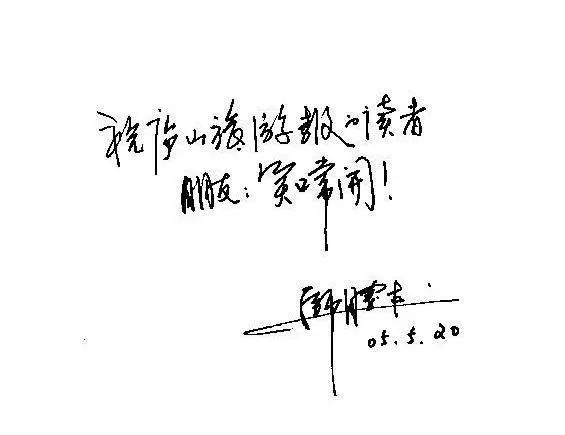 祝庐山旅游报的读者
朋友：笑口常开！
05.5.20